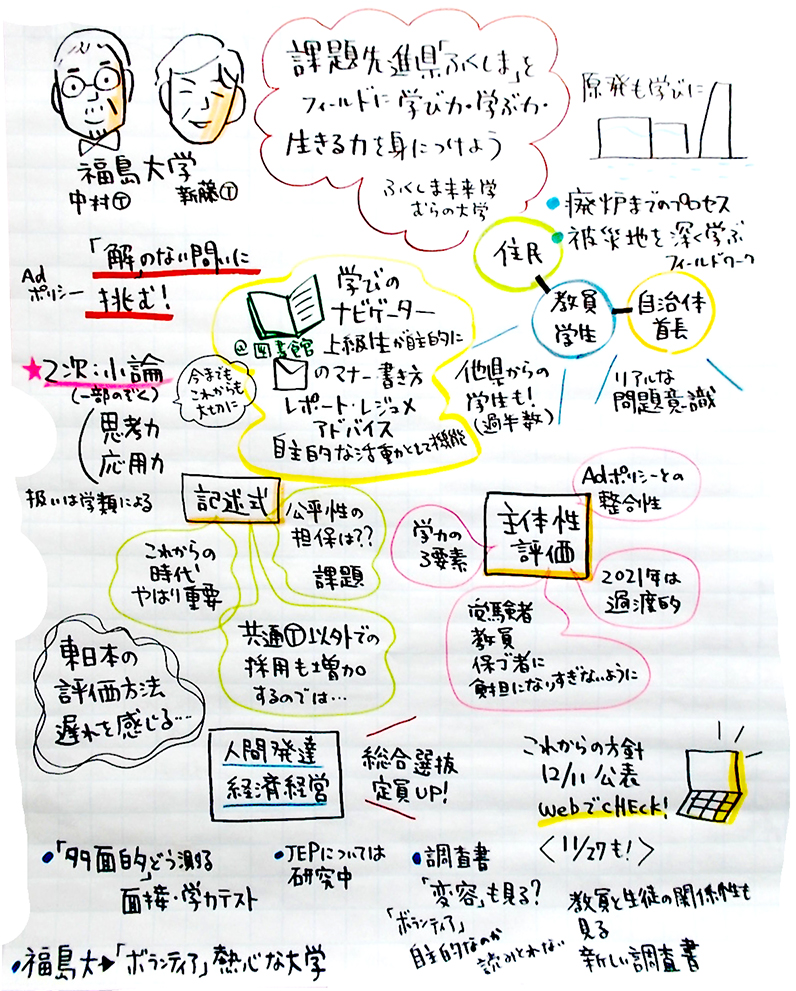 福島大学
中村Ⓣ 新藤Ⓣ
課題先進県「ふくしま」を
フィールドに学び力・学ぶ力・
生きる力を身につけよう
ふくしま未来学
むらの大学
原発も学びに
・廃炉までのプロセス
・被災地を深く学ぶ
フィールドワーク
住民
教員
学生
自治体
首長
他県からの
学生も!
(過半数)
リアルな
問題意識
Ad
ポリシー
「解」のない問いに
挑む!
★2次:小論
(一部のぞく)
思考力
応用力
扱いは学類による
今までも
これからも
大切に
学びの
ナビゲーター
@図書館 上級生が自主的に
のマナー書き方
レポート・レジュメ
アドバイス
自主的な活動かとして機能
記述式
公平性の
担保は??
課題
これからの
時代
やはり重要
共通Ⓣ以外での
採用も増加
するのでは…
主体性
評価
Adポリシーとの
整合性
学力の
3要素
2021年は
過渡的
受験者
教員
保ゴ者に
負担になりすぎないように
東日本の
評価方法
遅れを感じる…
人間発達
経済経営
総合選抜
定員UP!
これからの方針
12/11公表
WebでCHECK!
<11/27も!>
・「多面的」どう測る
面接・学力テスト
・JEPについては
研究中
・調査書
「変容」も見る?
「ボランティア」
自主的なのか
読みとれない
教員と生徒の関係性も
見る
新しい調査書
・福島大→「ボランティア」熱心な大学